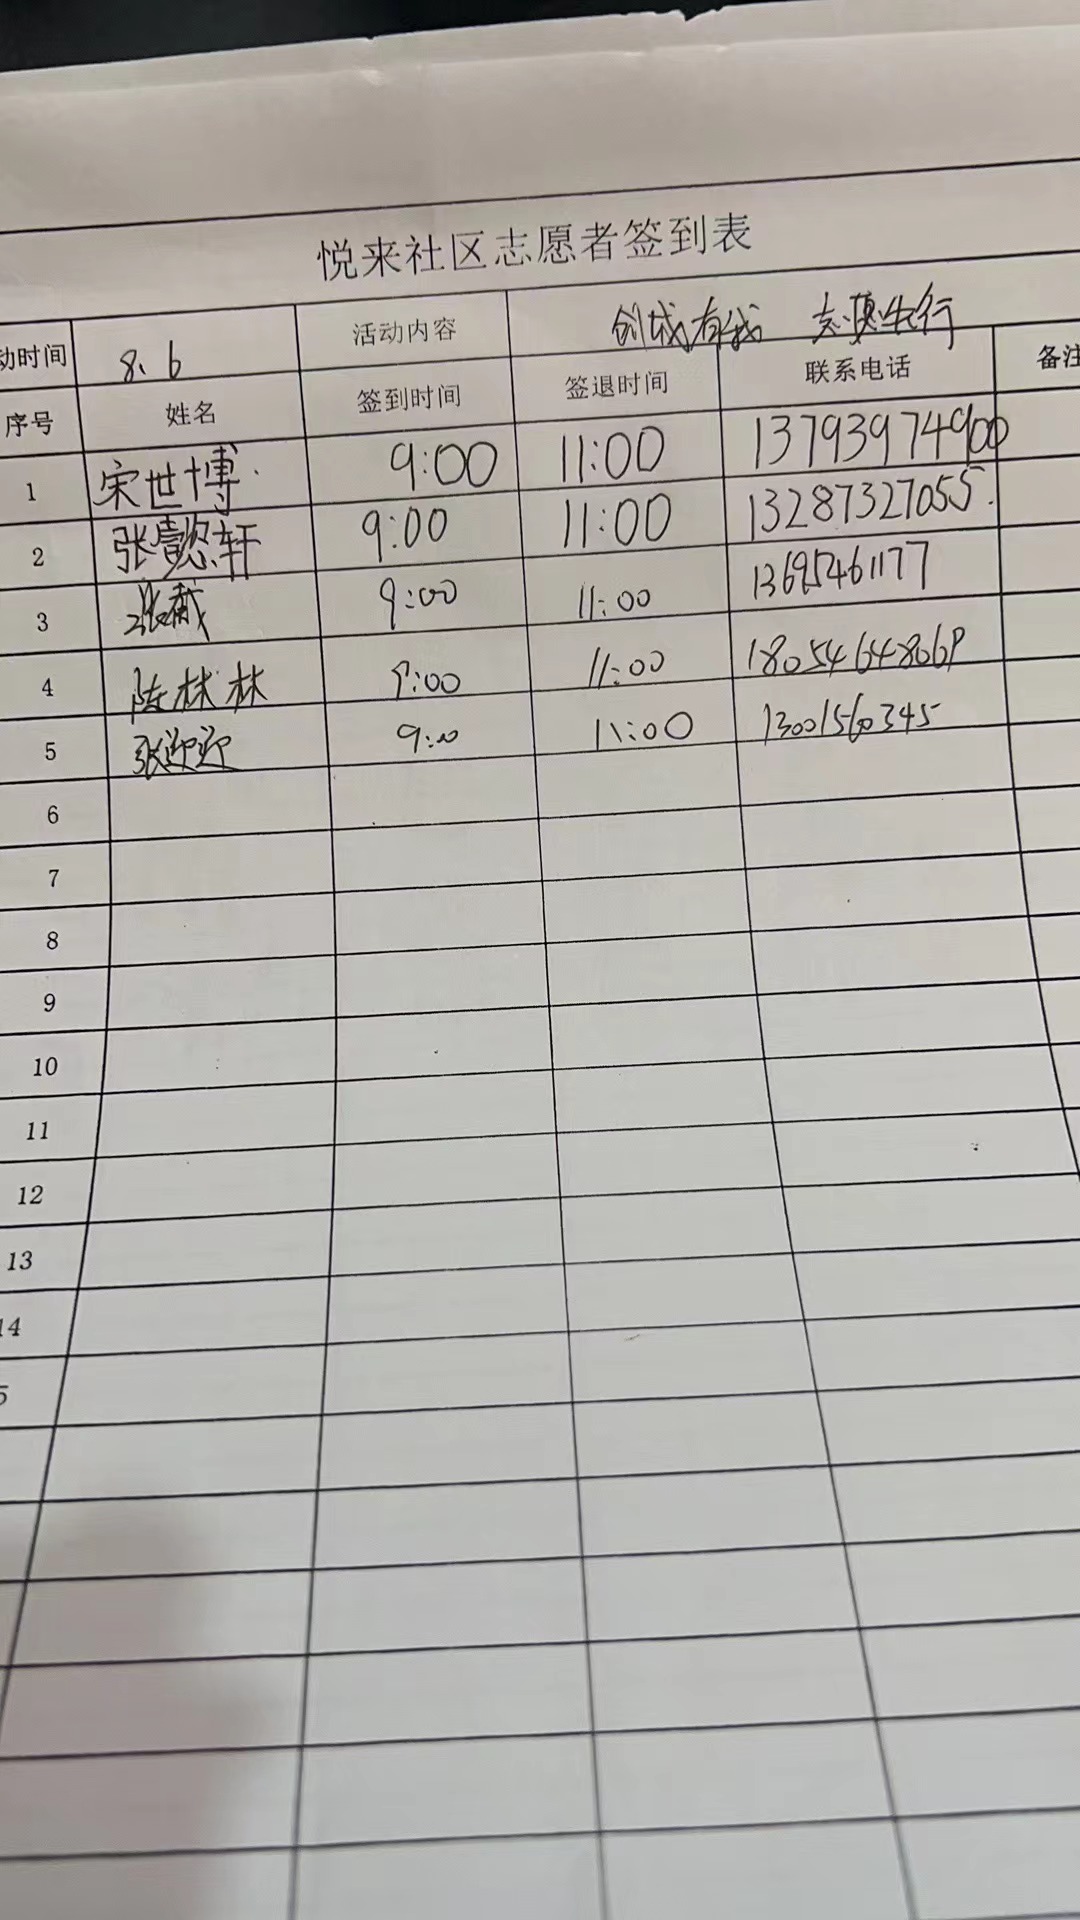 悦来社区志愿者签到表
动时间 8.6 活动内容 创城有我 志愿先行
序号 姓名 签到时间 签退时间 联系电话 备注
1 宋世博 9:00 11:00 13793974900
2 张懿轩 9:00 11:00 13287327055
3 9:00 11:00 13695461177
4 陈林林 9:00 11:00 18054648069
5 张迎迎 9:00 11:00 13001560345
6
7
8
9
10
11
12
13
14
5